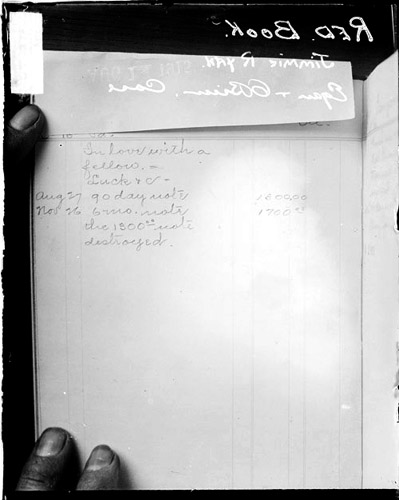 RED BOOK.
Jimmie Ryan.
Egan + O'Brien. Case
In love with a
fellow. -
Luck & C -
Aug 27 90 day note 1800.00
Nov 26 6 mo. note 1700.00
the 1800.00 note
destroyed.